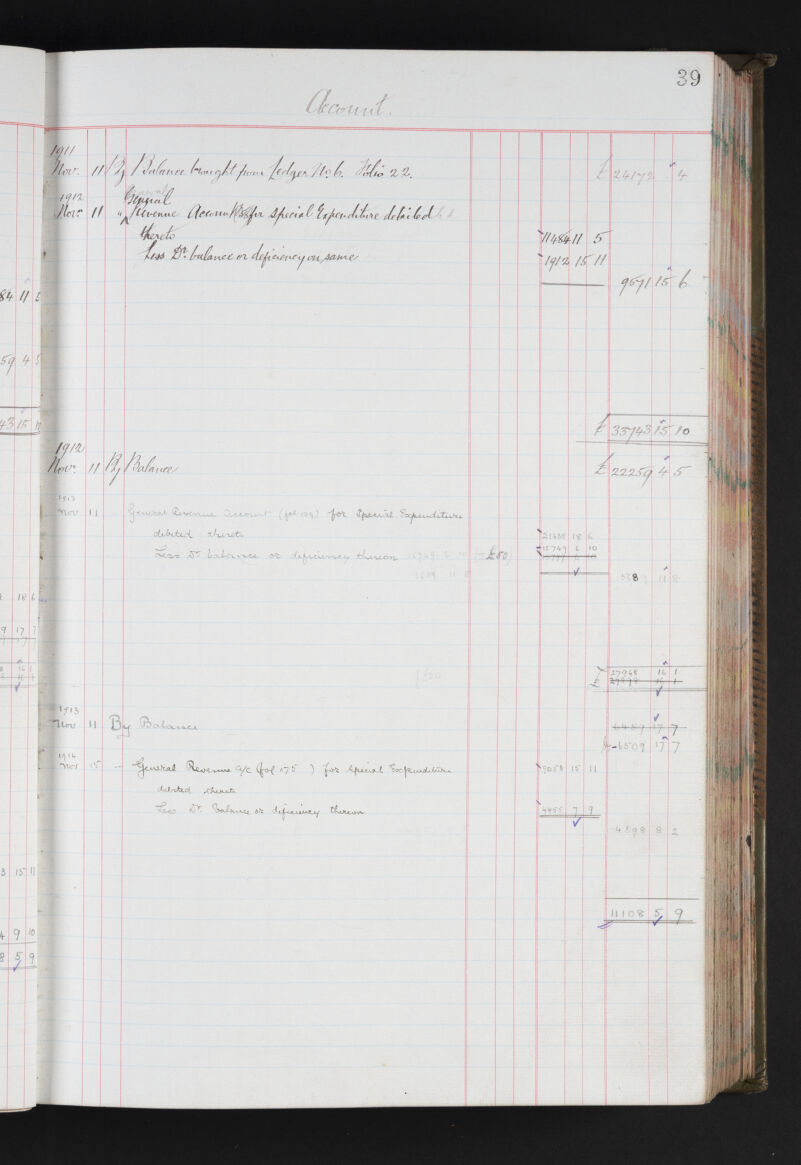 39
Account.
1911
Nov. 11 By Balance brought from Ledger No 6. Folio 22. £ 24172 " 4
1912 General
Nov. 11 " Revenue Account for special Expenditure detailed
thereto 11484 11 5
Less Dr. balance or deficiency on same 1912 15 11
9571 15 6
£ 33743 15 10
1912
Nov. 11 By Balance £ 22259 4 5
1913
Nov 11 " General Revenue Account (fol 109) for Special Expenditure
debited thereto 21458 18 6
Less Dr. balance or deficiency thereon 15749 6 10 £50 15749 6 10
11 8
£50
27968 16 1
1913
Nov 11 By Balance 6459 17 7
6509 17 7
1914
Nov 15 " General Revenue a/c (fol 175) for Special Expenditure 9053 15 11
debited thereto
Less Dr. Balance or deficiency thereon 4455 7 9
4598 8 2
11108 5 9
84 11 5
59 4 5
43 15 10
18 6
9 17 7
16 1
3 15 11
4 9 10
8 5 9